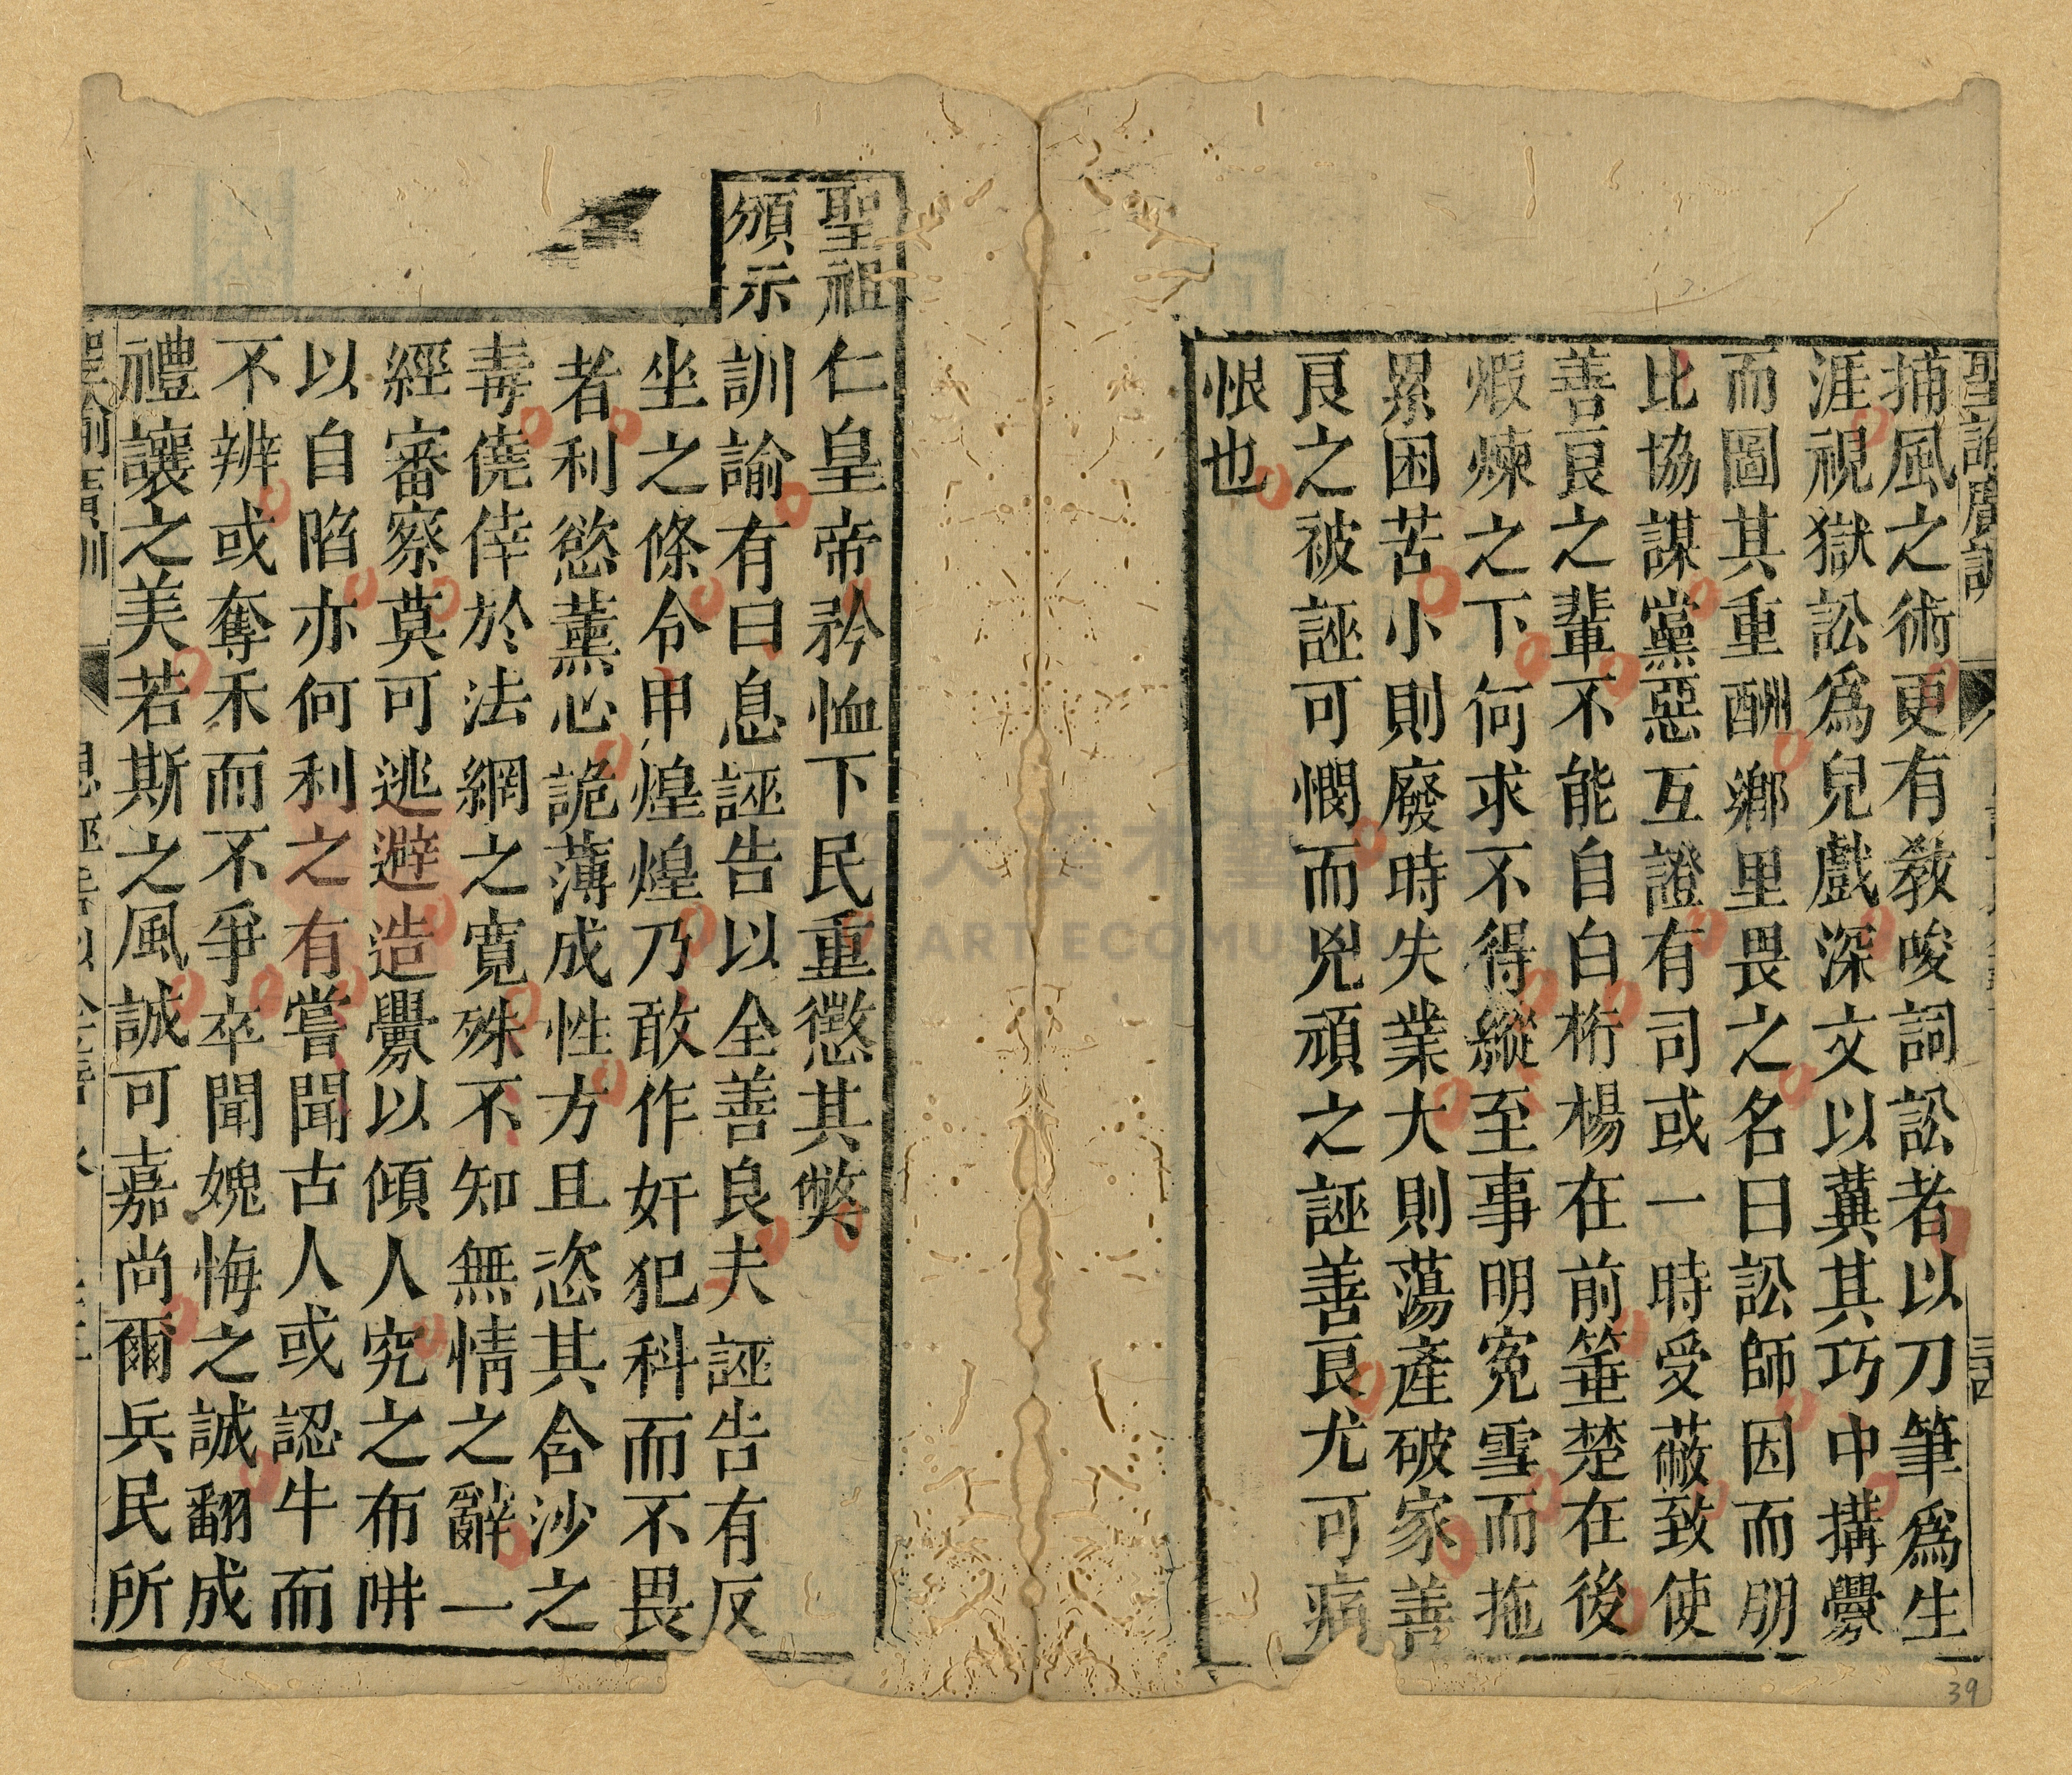 聖諭廣訓
捕風之術更有教唆詞訟者以刀筆為生
涯視獄訟爲兒戲深文以冀其巧中搆釁
而圖其重酬鄉里畏之名曰訟師因而朋
比協謀黨惡互證有司或一時受蔽致使
善良之輩不能自白桁楊在前箠楚在後
煆煉之下何求不得縱至事明寃雪而拖
累困苦小則廢時失業大則蕩產破家善
良之被誣可憫而兇頑之誣善良尤可痛
恨也
聖祖仁皇帝矜恤下民重懲其獘
頒示訓諭有曰息誣告以全善良夫誣告有反
坐之條令甲煌煌乃敢作奸犯科而不畏
者利慾薰心詭薄成性方且恣其含沙之
毒僥倖於法網之寬殊不知無情之辭一
經審察莫可逃避造釁以傾人究之布阱
以自陷亦何利之有嘗聞古人或認牛而
不辨或奪禾而不爭卒聞媿悔之誠翻成
禮讓之美若斯之風誠可嘉尚爾兵民所
聖諭廣訓
息誣告以全善良
39